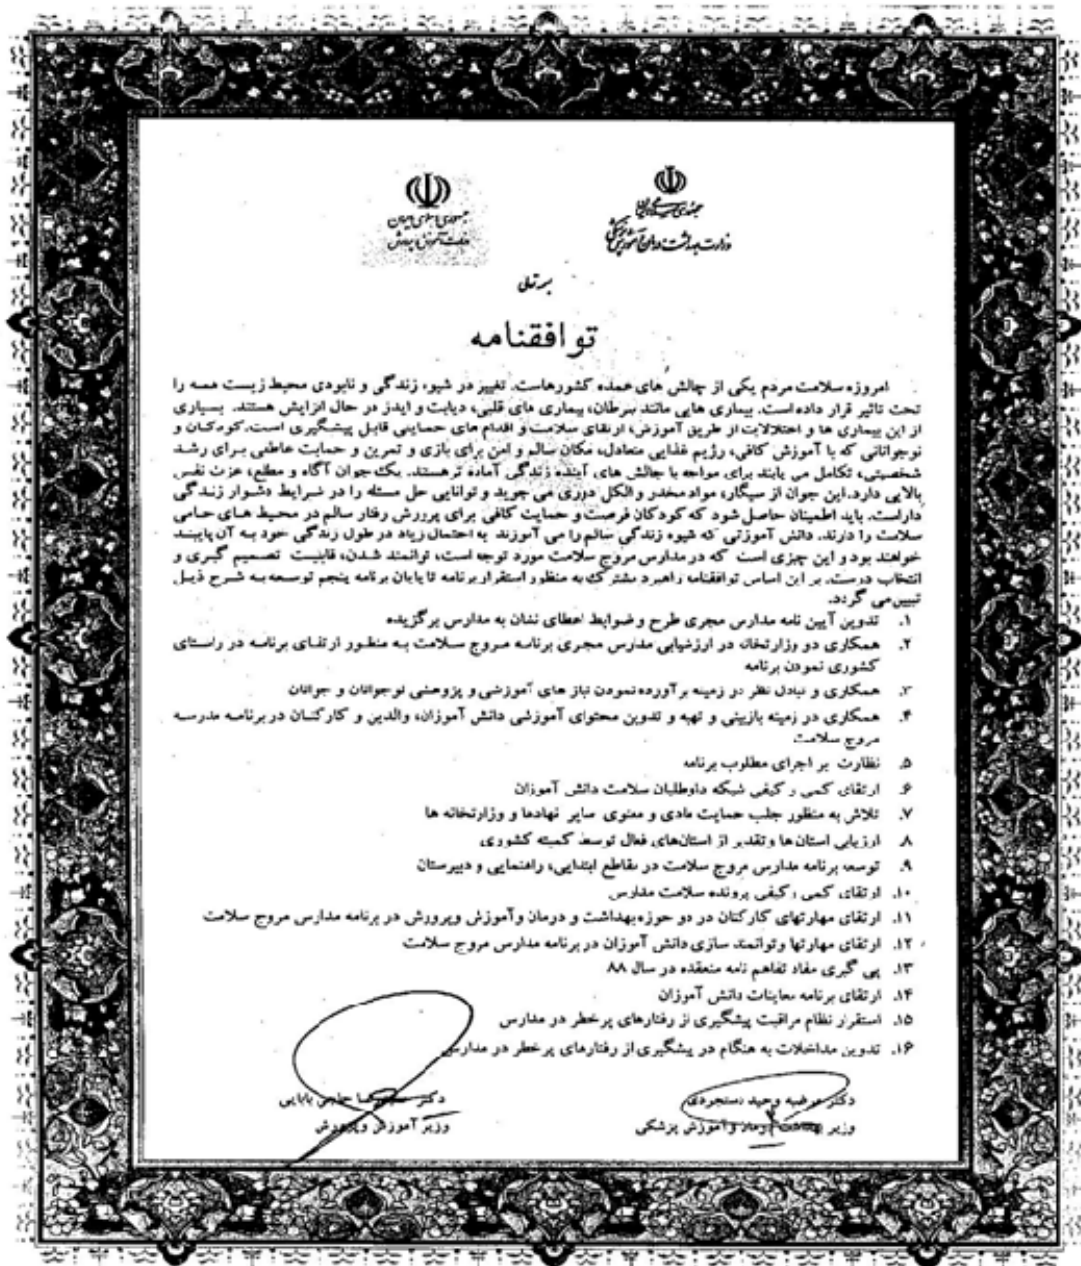 جمهوری اسلامی ایران
وزارت بهداشت، درمان و آموزش پزشکی
جمهوری اسلامی ایران
وزارت آموزش و پرورش
بسمه تعالی
توافقنامه
امروزه سلامت مردم یکی از چالش های عمده کشورهاست. تغییر در شیوه زندگی و نابودی محیط زیست همه را
تحت تاثیر قرار داده است. بیماری هایی مانند سرطان، بیماری های قلبی، دیابت و ایدز در حال افزایش هستند. بسیاری
از این بیماری ها و اختلالات از طریق آموزش، ارتقای سلامت و اقدام های حمایتی قابل پیشگیری است. کودکان و
نوجوانانی که با آموزش کافی، رژیم غذایی متعادل، مکان سالم و امن برای بازی و تمرین و حمایت عاطفی برای رشد
شخصیتی، تکامل می یابند برای مواجه با چالش های آینده زندگی آماده تر هستند. یک جوان آگاه و مطلع، عزت نفس
بالایی دارد. این جوان از سیگار، مواد مخدر و الکل دوری می جوید و توانایی حل مسئله را در شرایط دشوار زندگی
داراست. باید اطمینان حاصل شود که کودکان فرصت و حمایت کافی برای پرورش رفتار سالم در محیط های حامی
سلامت را دارند. دانش آموزنی که شیوه زندگی سالم را می آموزند به احتمال زیاد در طول زندگی خود به آن پایبند
خواهند بود و این چیزی است که در مدارس مروج سلامت مورد توجه است، توانمند شدن، قابلیت تصمیم گیری و
انتخاب درست. بر این اساس توافقنامه راهبرد مشترک به منظور استقرار برنامه تا پایان برنامه پنجم توسعه به شرح ذیل
تبیین می گردد.
۱. تدوین آیین نامه مدارس مجری طرح و ضوابط اعطای نشان به مدارس برگزیده
۲. همکاری دو وزارتخانه در ارزشیابی مدارس مجری برنامه مروج سلامت به منظور ارتقای برنامه در راستای
کشوری نمودن برنامه
۳. همکاری و تبادل نظر در زمینه برآورده نمودن نیاز های آموزشی و پژوهشی نوجوانان و جوانان
۴. همکاری در زمینه بازبینی و تهیه و تدوین محتوای آموزشی دانش آموزان، والدین و کارکنان در برنامه مدرسه
مروج سلامت
۵. نظارت بر اجرای مطلوب برنامه
۶. ارتقای کمی و کیفی شبکه داوطلبان سلامت دانش آموزان
۷. تلاش به منظور جلب حمایت مادی و معنوی سایر نهادها و وزارتخانه ها
۸. ارزیابی استان ها و تقدیر از استان‌های فعال توسط کمیته کشوری
۹. توسعه برنامه مدارس مروج سلامت در مقاطع ابتدایی، راهنمایی و دبیرستان
۱۰. ارتقای کمی و کیفی پرونده سلامت مدارس
۱۱. ارتقای مهارتهای کارکنان در دو حوزه بهداشت و درمان وآموزش وپرورش در برنامه مدارس مروج سلامت
۱۲. ارتقای مهارتها وتوانمند سازی دانش آموزان در برنامه مدارس مروج سلامت
۱۳. پی گیری مفاد تفاهم نامه منعقده در سال ۸۸
۱۴. ارتقای برنامه معاینات دانش آموزان
۱۵. استقرار نظام مراقبت پیشگیری از رفتارهای پرخطر در مدارس
۱۶. تدوین مداخلات به هنگام در پیشگیری از رفتارهای پرخطر در مدارس
دکتر مرضیه وحید دستجردی
وزیر بهداشت درمان و آموزش پزشکی
دکتر حمیدرضا حاجی بابایی
وزیر آموزش وپرورش